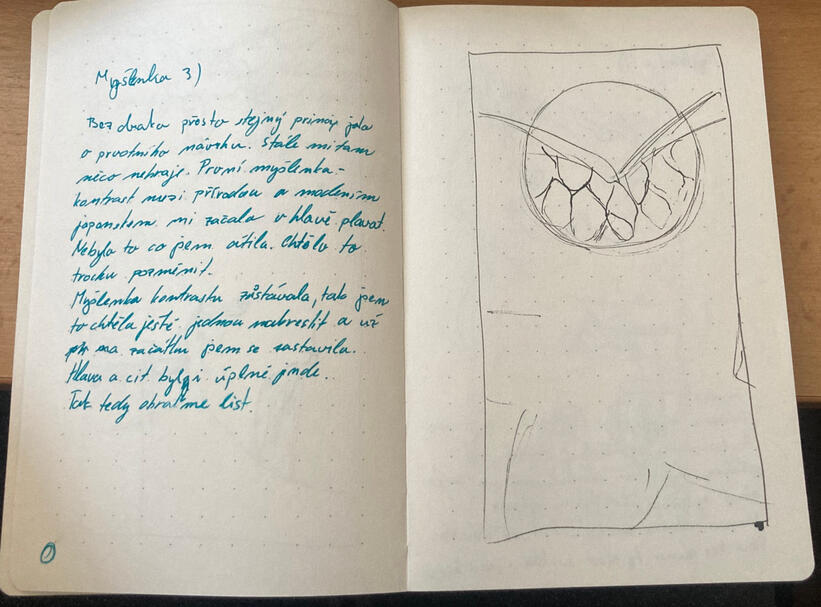 Myšlenka 3)
Bez draka prostě stejný princip jako
u prvotního návrhu. Stále mi tam
něco nehraje. První myšlenka -
kontrast mezi přírodou a moderním
japonstem mi začala v hlavě plavat.
Nebyla to co jsem cítila. Chtělo to
trochu pozměnit.
Myšlenka kontrastu zůstávala, tak jsem
to chtěla ještě jednou nakreslit a už
na začátku jsem se zastavila.
Hlava a cit byly úplně jinde.
Tak tedy obraťme list.